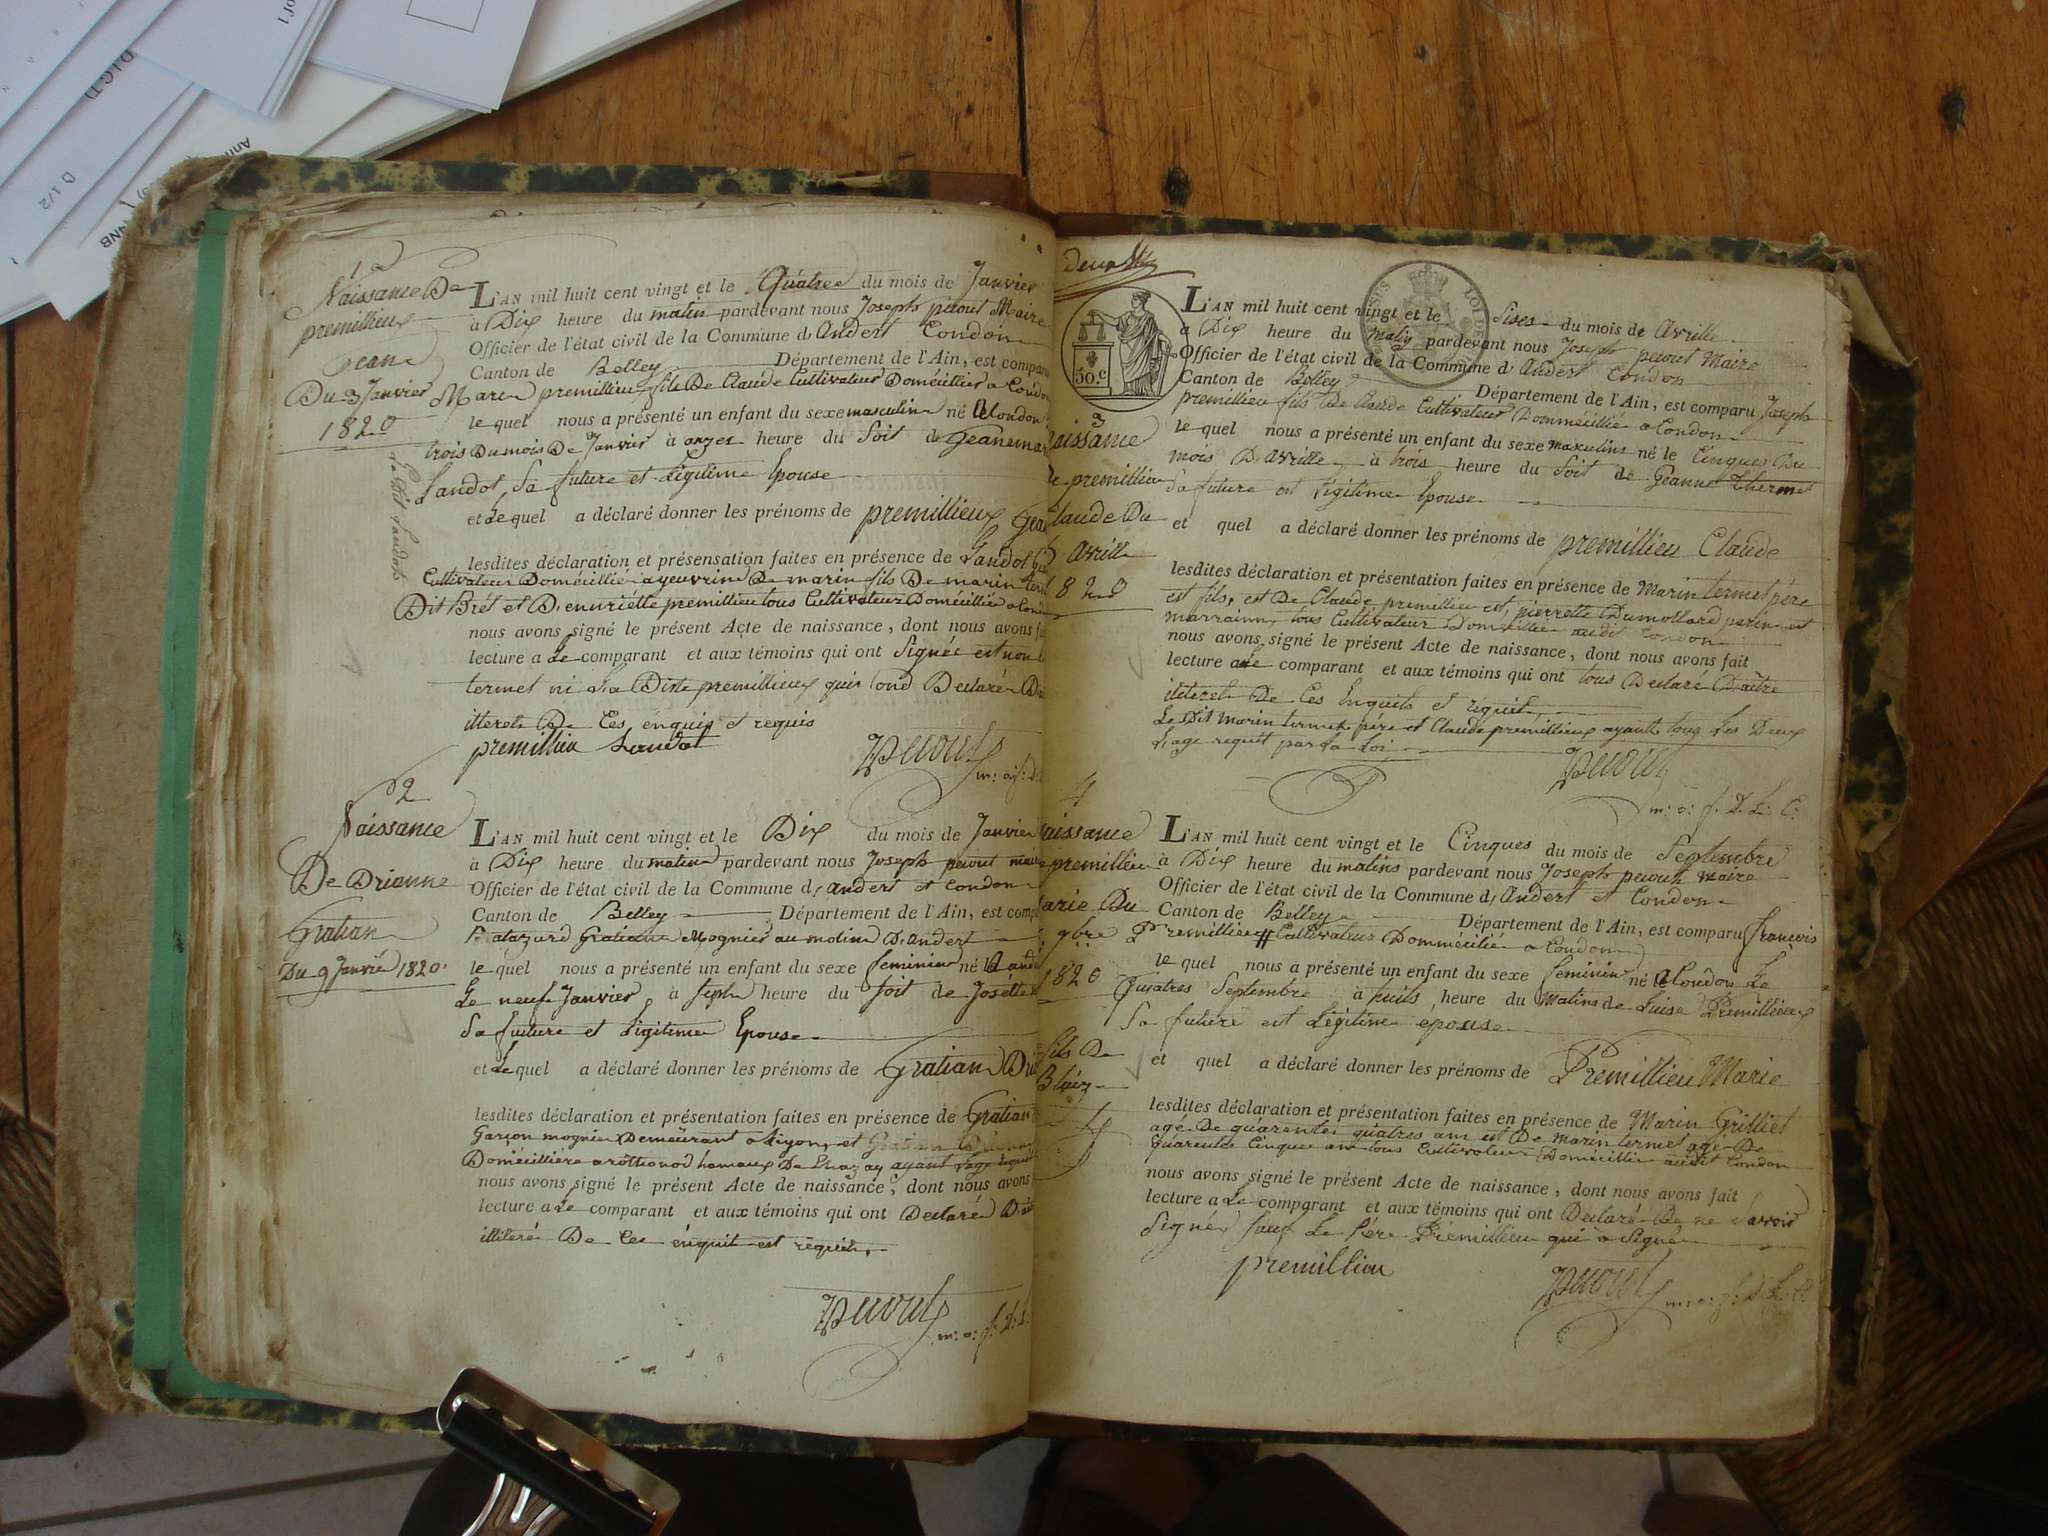 1
Naissance De
premillieux
jean
Du 3 Janvier
1820
L'AN mil huit cent vingt et le Quatre du mois de Janvier
à Dix heure du matin pardevant nous Joseph peront Maire
Officier de l'état civil de la Commune d'Andert Condon
Canton de Belley Département de l'Ain, est comparu
Marin premillieux fils De Claude Cultivateur Domécillier a Condon
le quel nous a présenté un enfant du sexe masculin né a Condon
trois Du mois De Janvier à onzer heure du Soit de Jeanemar
Landot Sa future et Légitime Epouse
et Le quel a déclaré donner les prénoms de premillieux Jean
lesdites déclaration et présensation faites en présence de Landot
Cultivateur Domécillié a yeuvrin De marin fils De marin
Dit Brét et D'enuriétte premillieu tous Cultivateur Domécillié a Con
nous avons signé le présent Acte de naissance, dont nous avons f
lecture a Le comparant et aux témoins qui ont Signée est non
termet ni La Diste premillieux quis ond Declaré D
itteret De Ces enquis et requis
premillieu Landot
m: o: f: D:
2
Naissance
De Drianne
Gratian
Du 9 Janvié 1820.
L'AN mil huit cent vingt et le Dix du mois de Janvier
à Dix heure du matin pardevant nous Joseph peront maire
Officier de l'état civil de la Commune d'andert et Condon
Canton de Belley Département de l'Ain, est comp
Gratian Mognier au molin D'andert
le quel nous a présenté un enfant du sexe feminin né a and
Le neuf Janvier à septe heure du soit de Josette
Sa future et Légitime Epouse
et Le quel a déclaré donner les prénoms de Gratian Dri
lesdites déclaration et présentation faites en présence de Gratian
Garçon mognier Demeurant a et
Domécillière a rothonod hamaux De ayant l'age requit
nous avons signé le présent Acte de naissance, dont nous avons
lecture a Le comparant et aux témoins qui ont Declaré D
illiteré De Ces énquit est réquit
m: o: f: d: L:
deux
30.c
LOI DE
3
aissance
De premillieu
Claude Du
5 avrille
820
L'AN mil huit cent vingt et le Sixes du mois de Avrille
à Dix heure du matin pardevant nous Joseph peront Maire
Officier de l'état civil de la Commune d'Andert Condon
Canton de Belley Département de l'Ain, est comparu Joseph
premillieu fils De Claude Cultivateur Dommécillié a Condon
le quel nous a présenté un enfant du sexe masculins né le Cinques Du
mois D'avrille à trois heure du Soit de Jeanne thermet
Sa future est Légitime Epouse
et quel a déclaré donner les prénoms de premillieu Claude
lesdites déclaration et présentation faites en présence de Marin termet pére
est fils, est De Claude premillieu est, pierrette Dumollard parin est
marrainn tous Cultivateur Domécillié audit Condon
nous avons signé le présent Acte de naissance, dont nous avons fait
lecture a Le comparant et aux témoins qui ont tous Declaré D'aître
iliteret De Ces Enquits et réquit
Le Dit marin termet pére et Claude premillieux ayants tous Les Deux
L'age requit par La Loi
m: o: f: D. L: C:
4
aissance
premillieu
Marie Du
4 9bre
1820
fils De
Blaiz
L'AN mil huit cent vingt et le Cinques du mois de Septembre
à Dix heure du matins pardevant nous Joseph peront maire
Officier de l'état civil de la Commune d'Andert et Condon
Canton de Belley Département de l'Ain, est comparu françois
Premillieu # Cultivateur Dommécilié a Condon
le quel nous a présenté un enfant du sexe feminin né a Condon Le
Quatres Septembre à huits heure du Matins de Luise Premillieux
Sa future est Légitime épouse
et quel a déclaré donner les prénoms de Premillieu Marie
lesdites déclaration et présentation faites en présence de Marin Grilliet
age De quarentes quatres ans est De marin termet agé De
quarentes Cinques ans tous Cultivateur Domécillié audit Condon
nous avons signé le présent Acte de naissance, dont nous avons fait
lecture a Le comparant et aux témoins qui ont Declaré De ne Savoir
Signér Sauf Le Pére Prémillieu qui a Signé
premillieu
m: o: f: D L: C:
D 1/2